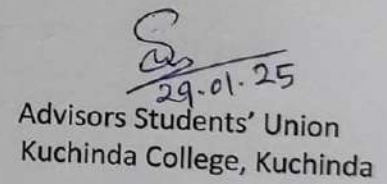 29.01.25
Advisors Students' Union
Kuchinda College, Kuchinda